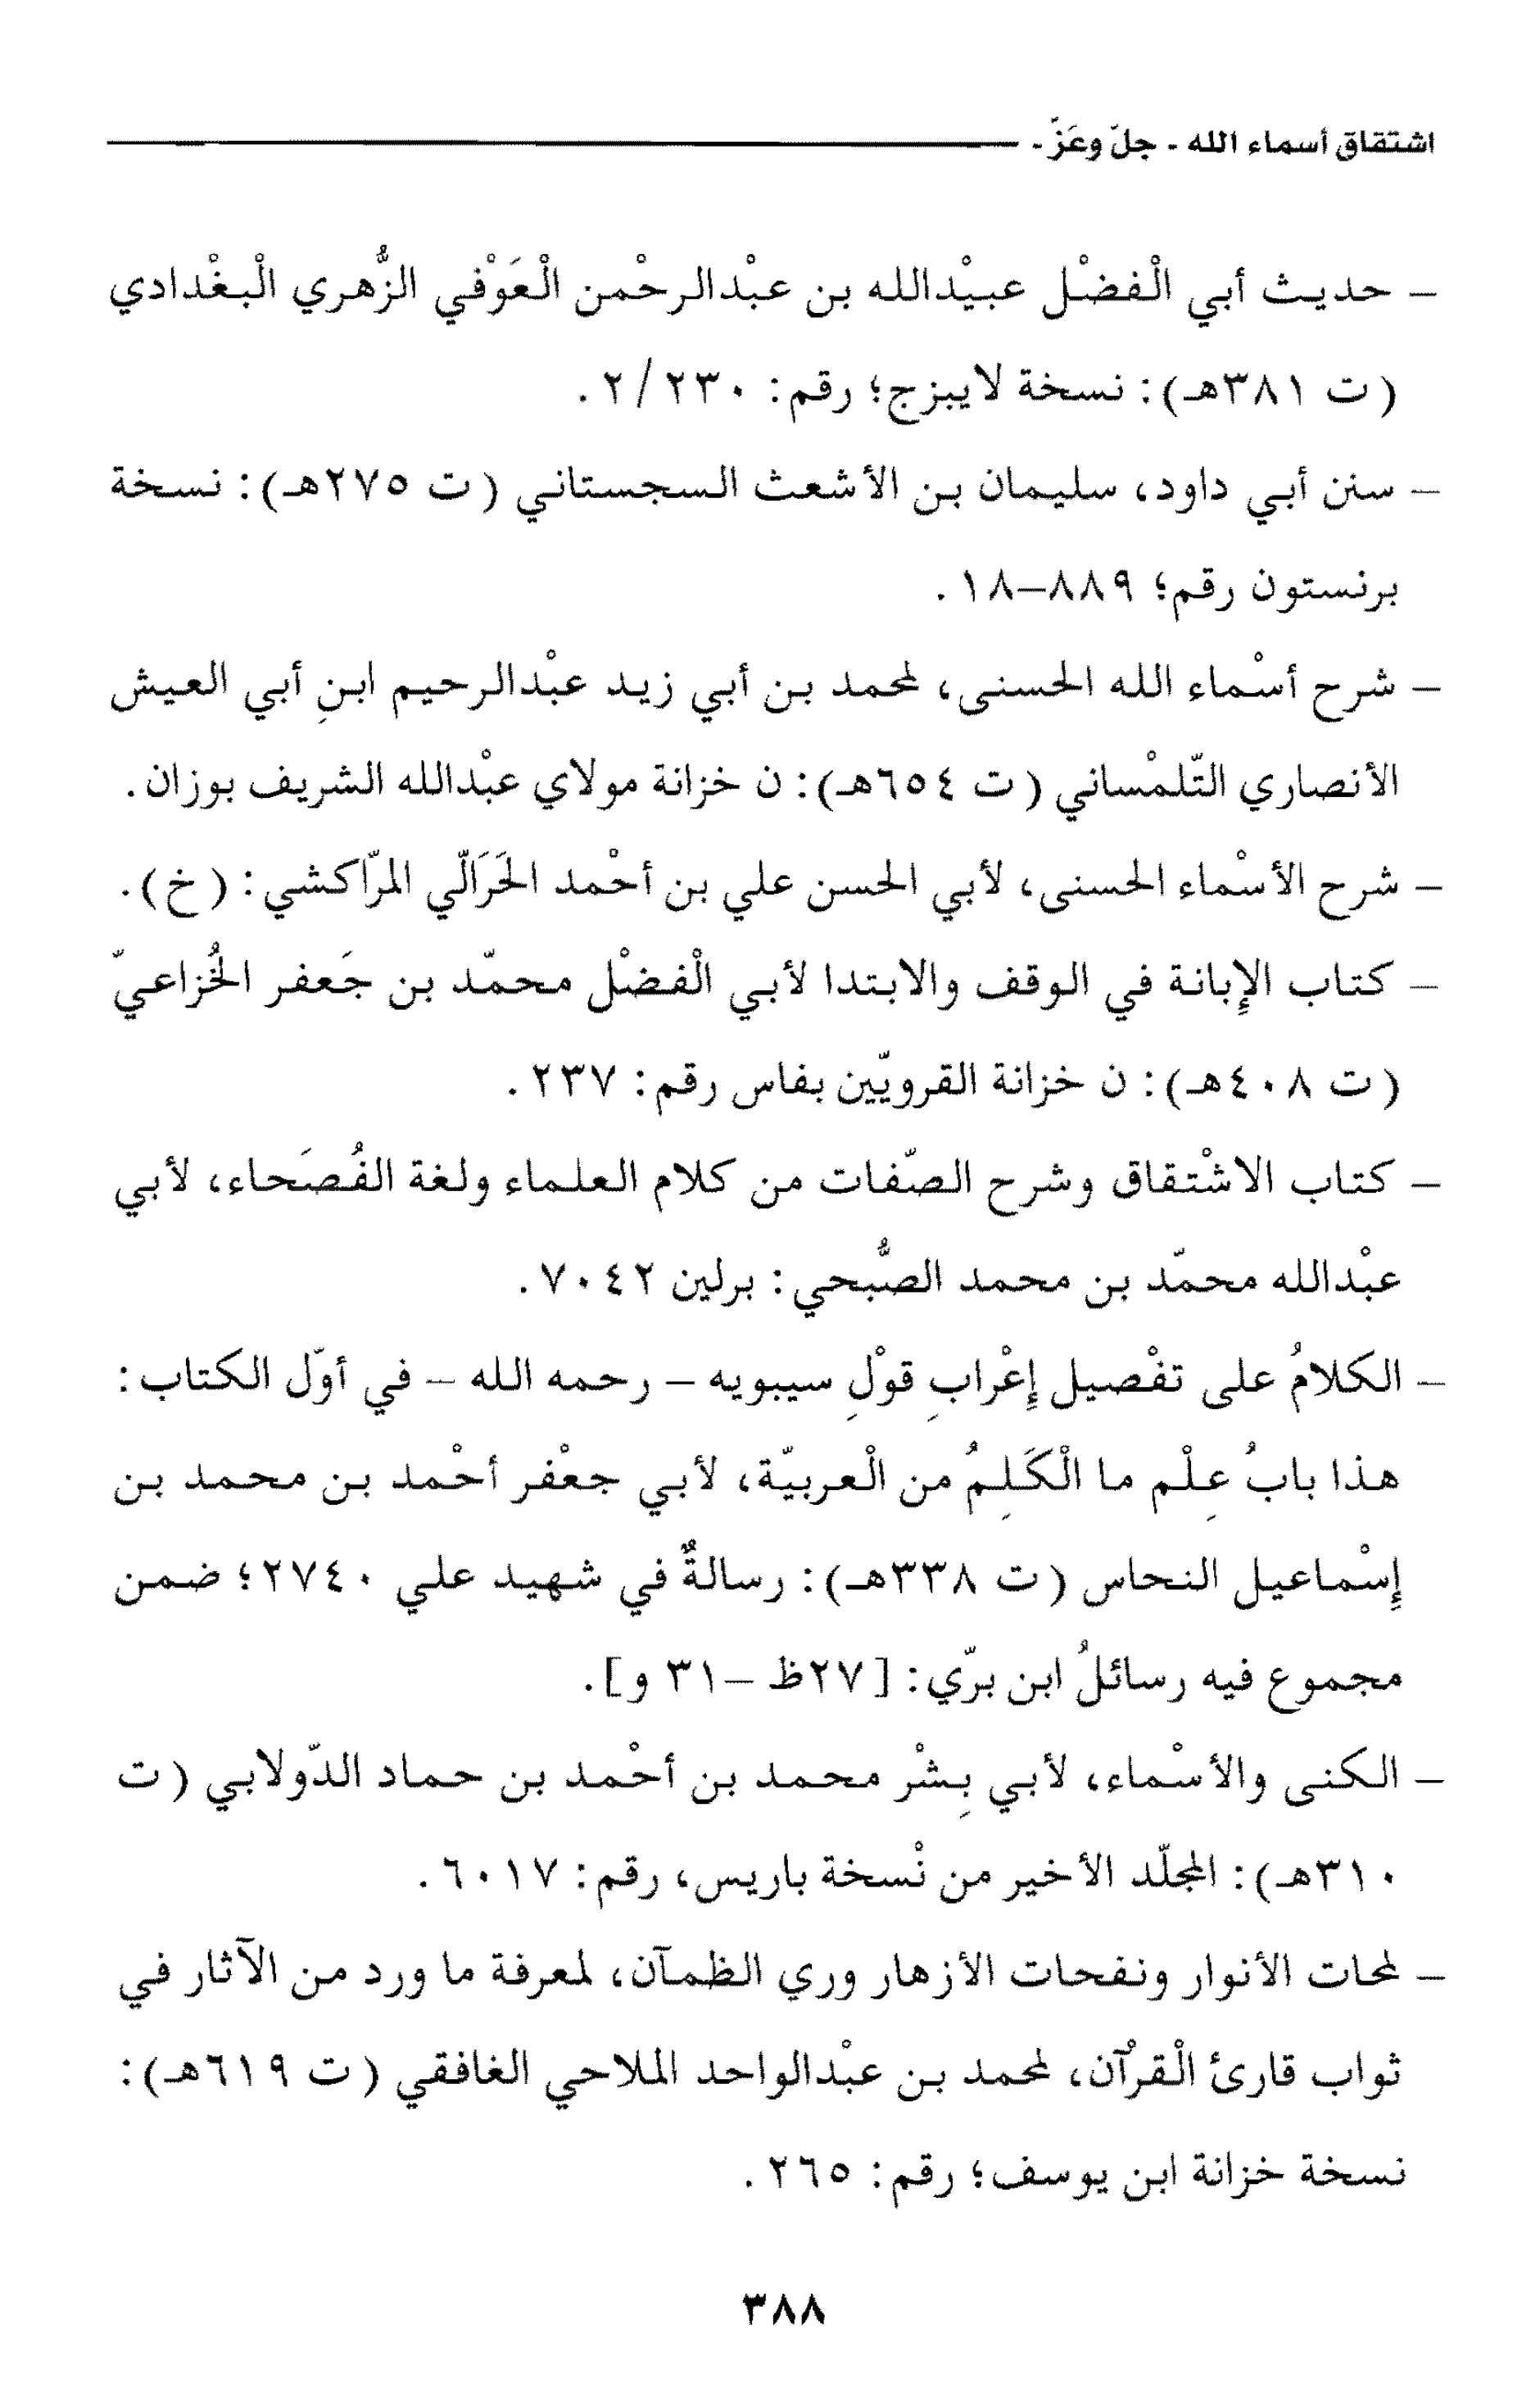 اشتقاق أسماء الله - جلّ وعَزّ -
– حديث أبي الْفضْل عبيْدالله بن عبْدالرحْمن الْعَوْفي الزُّهري الْبغْدادي
(ت ٣٨١هـ): نسخة لايبزج؛ رقم: ٢/٢٣٠.
– سنن أبي داود، سليمان بن الأشعث السجستاني (ت ٢٧٥هـ): نسخة
برنستون رقم؛ ٨٨٩–١٨.
– شرح أسْماء الله الحسنى، لمحمد بن أبي زيد عبْدالرحيم ابنِ أبي العيش
الأنصاري التّلمْساني (ت ٦٥٤هـ): ن خزانة مولاي عبْدالله الشريف بوزان.
– شرح الأسْماء الحسنى، لأبي الحسن علي بن أحْمد الحَرَالّي المرّاكشي: (خ).
– كتاب الإبانة في الوقف والابتدا لأبي الْفضْل محمّد بن جَعفر الخُزاعيّ
(ت ٤٠٨هـ): ن خزانة القرويّين بفاس رقم: ٢٣٧.
– كتاب الاشْتقاق وشرح الصّفات من كلام العلماء ولغة الفُصَحاء، لأبي
عبْدالله محمّد بن محمد الصُّبحي: برلين ٧٠٤٢.
– الكلامُ على تفْصيل إعْرابِ قوْلِ سيبويه – رحمه الله – في أوّل الكتاب:
هذا بابُ عِلْم ما الْكَلِمُ من الْعربيّة، لأبي جعْفر أحْمد بن محمد بن
إسْماعيل النحاس (ت ٣٣٨هـ): رسالةٌ في شهيد علي ٢٧٤٠؛ ضمن
مجموع فيه رسائلُ ابن برّي: [٢٧ظ –٣١ و].
– الكنى والأسْماء، لأبي بِشْر محمد بن أحْمد بن حماد الدّولابي (ت
٣١٠هـ): المجلّد الأخير من نْسخة باريس، رقم: ٦٠١٧.
– لمحات الأنوار ونفحات الأزهار وري الظمآن، لمعرفة ما ورد من الآثار في
ثواب قارئ الْقرْآن، لمحمد بن عبْدالواحد الملاحي الغافقي (ت ٦١٩هـ):
نسخة خزانة ابن يوسف؛ رقم: ٢٦٥.
٣٨٨